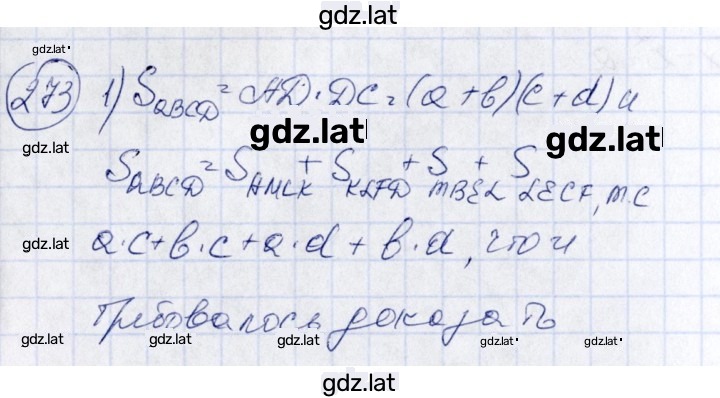 gdz.lat
gdz.lat
273 1) S_ABCD = AD · DC = (a + b)(c + d) и
gdz.lat gdz.lat gdz.lat
S_ABCD = S_AMLK + S_KLFD + S_MBEL + S_LECF, т.е
gdz.lat a·c+b·c+a·d + b·d, что и
требовалось доказать
gdz.lat gdz.lat gdz.lat gdz.lat gdz.lat
gdz.lat